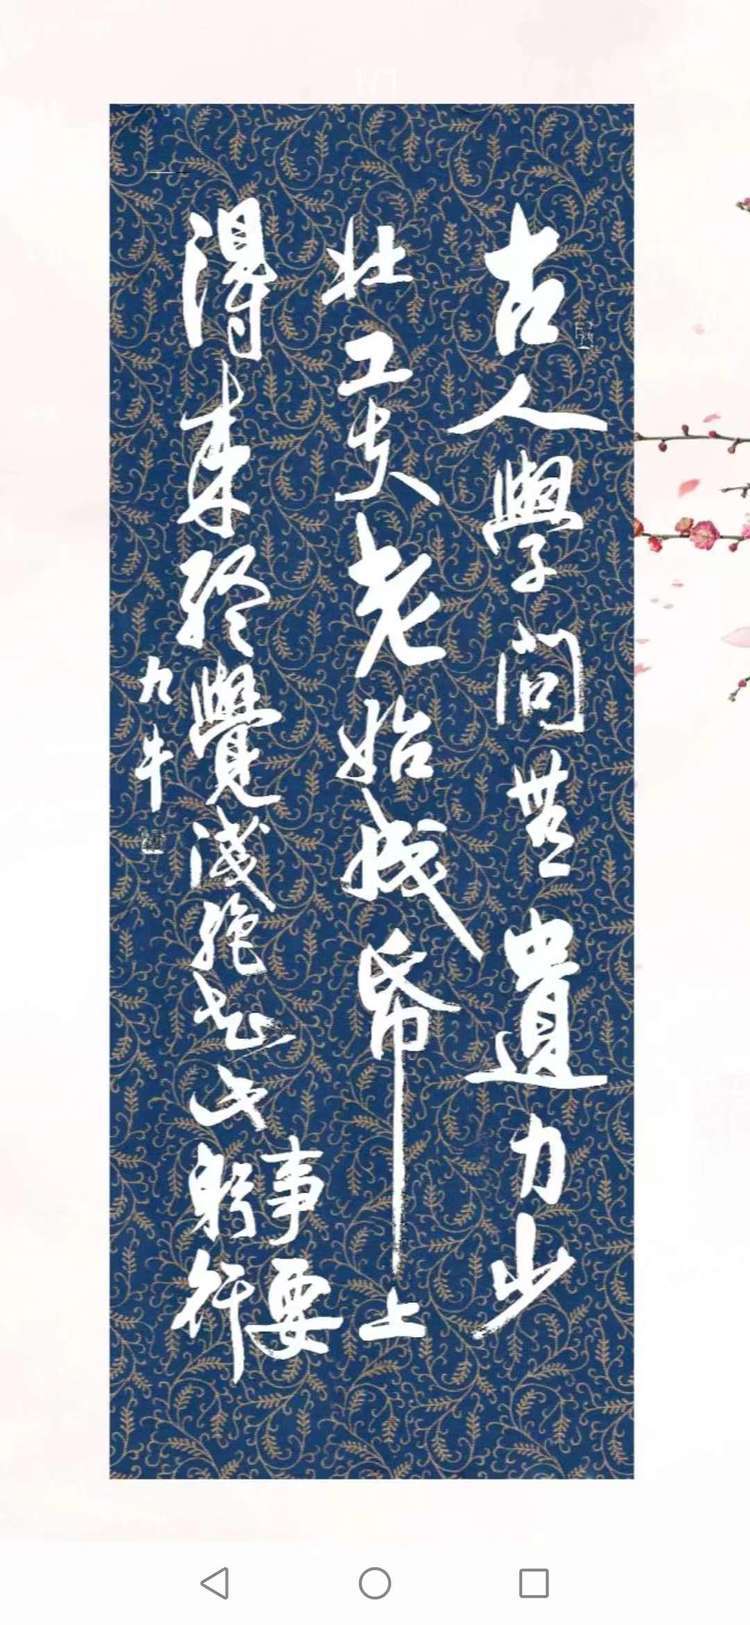 古人學問無遺力少
壮工夫老始成帋上
得来終覺淺絕知此事要躬行
九牛